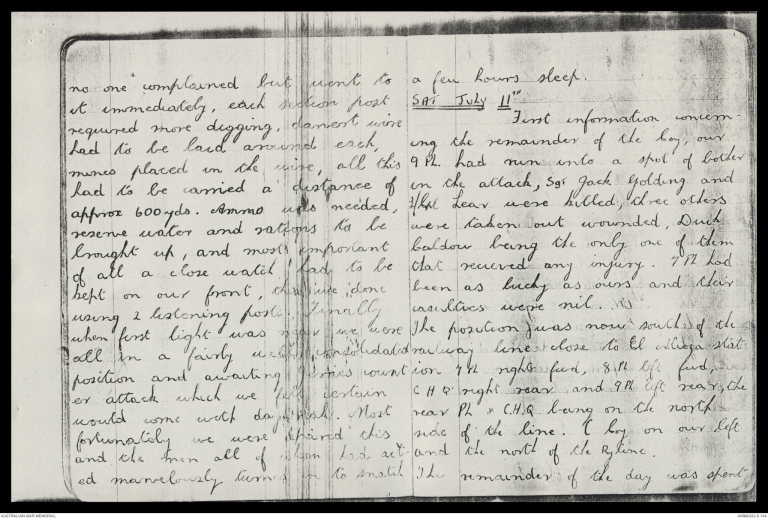 no one complained but went to
it immediately, each section post
required more digging, danert wire
had to be laid around each,
mines placed in the wire, all this
had to be carried a distance of
approx 600 yds. Ammo was needed,
reserve water and rations to be
brought up, and most important
of all a close watch had to be
kept on our front, this we done
using 2 listening posts. Finally
when first light was near we were
all in a fairly well consolidated
position and awaiting Jerries count
er attack which we felt certain
would come with day break. Most
fortunately we were spared this
and the men all of whom had act-
ed marvelously turned in to snatch
a few hours sleep.
SAT July 11th
First information concern-
ing the remainder of the boy, our
9 PL. had run into a spot of bother
in the attack, Sgt Jack Golding and
Lear were killed, three others
were taken out wounded, Dick
Baldow being the only one of them
that recieved any injury. 7 Pl had
been as lucky as ours and their
casulties were nil.
The position was now south of the
railway line close to El stat-
ion 7 Pl right fwd, 8 Pl left fwd,
C H Q right rear and 9 Pl left rear, the
rear Pl & C.H.Q being on the north
side of the line. C boy on our left
and the north of the Ry line.
The remainder of the day was spent
AUSTRALIAN WAR MEMORIAL